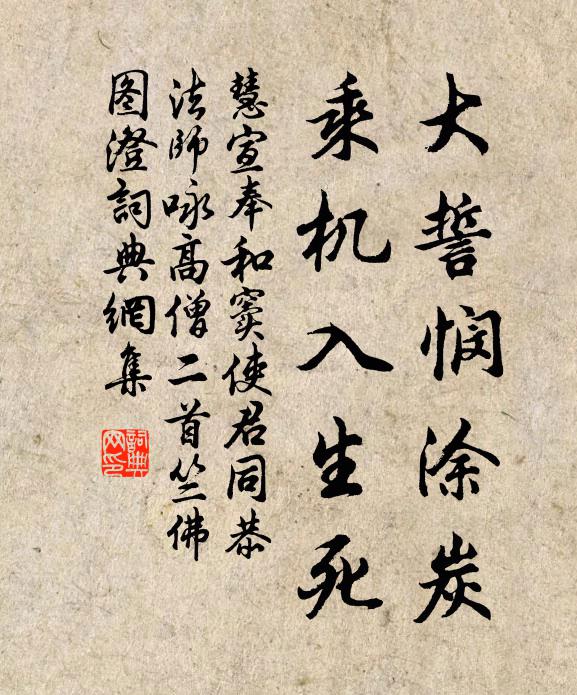 大誓悯涂炭
乘机入生死
慧宣奉和窦使君同恭
法師咏高僧二首竺佛
图澄詞典網集
詞典
网印